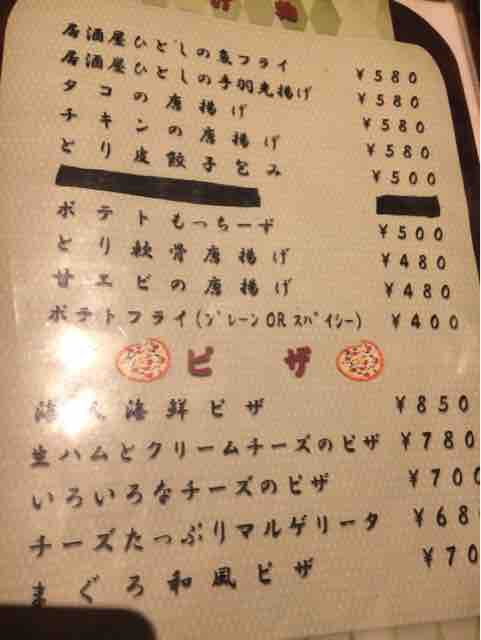 揚物
居酒屋ひどしの魚フライ ¥580
居酒屋ひどしの手羽先揚げ ¥580
タコの唐揚げ ¥580
チキンの唐揚げ ¥580
とり皮餃子包み ¥500
ポテトもっちーず ¥500
とり軟骨唐揚げ ¥480
甘エビの唐揚げ ¥480
ポテトフライ(プレーンOR スパイシー) ¥400
ピザ
海鮮ピザ ¥850
生ハムとクリームチーズのピザ ¥780
いろいろなチーズのピザ ¥700
チーズたっぷりマルゲリータ ¥68
まぐろ和風ピザ ¥70